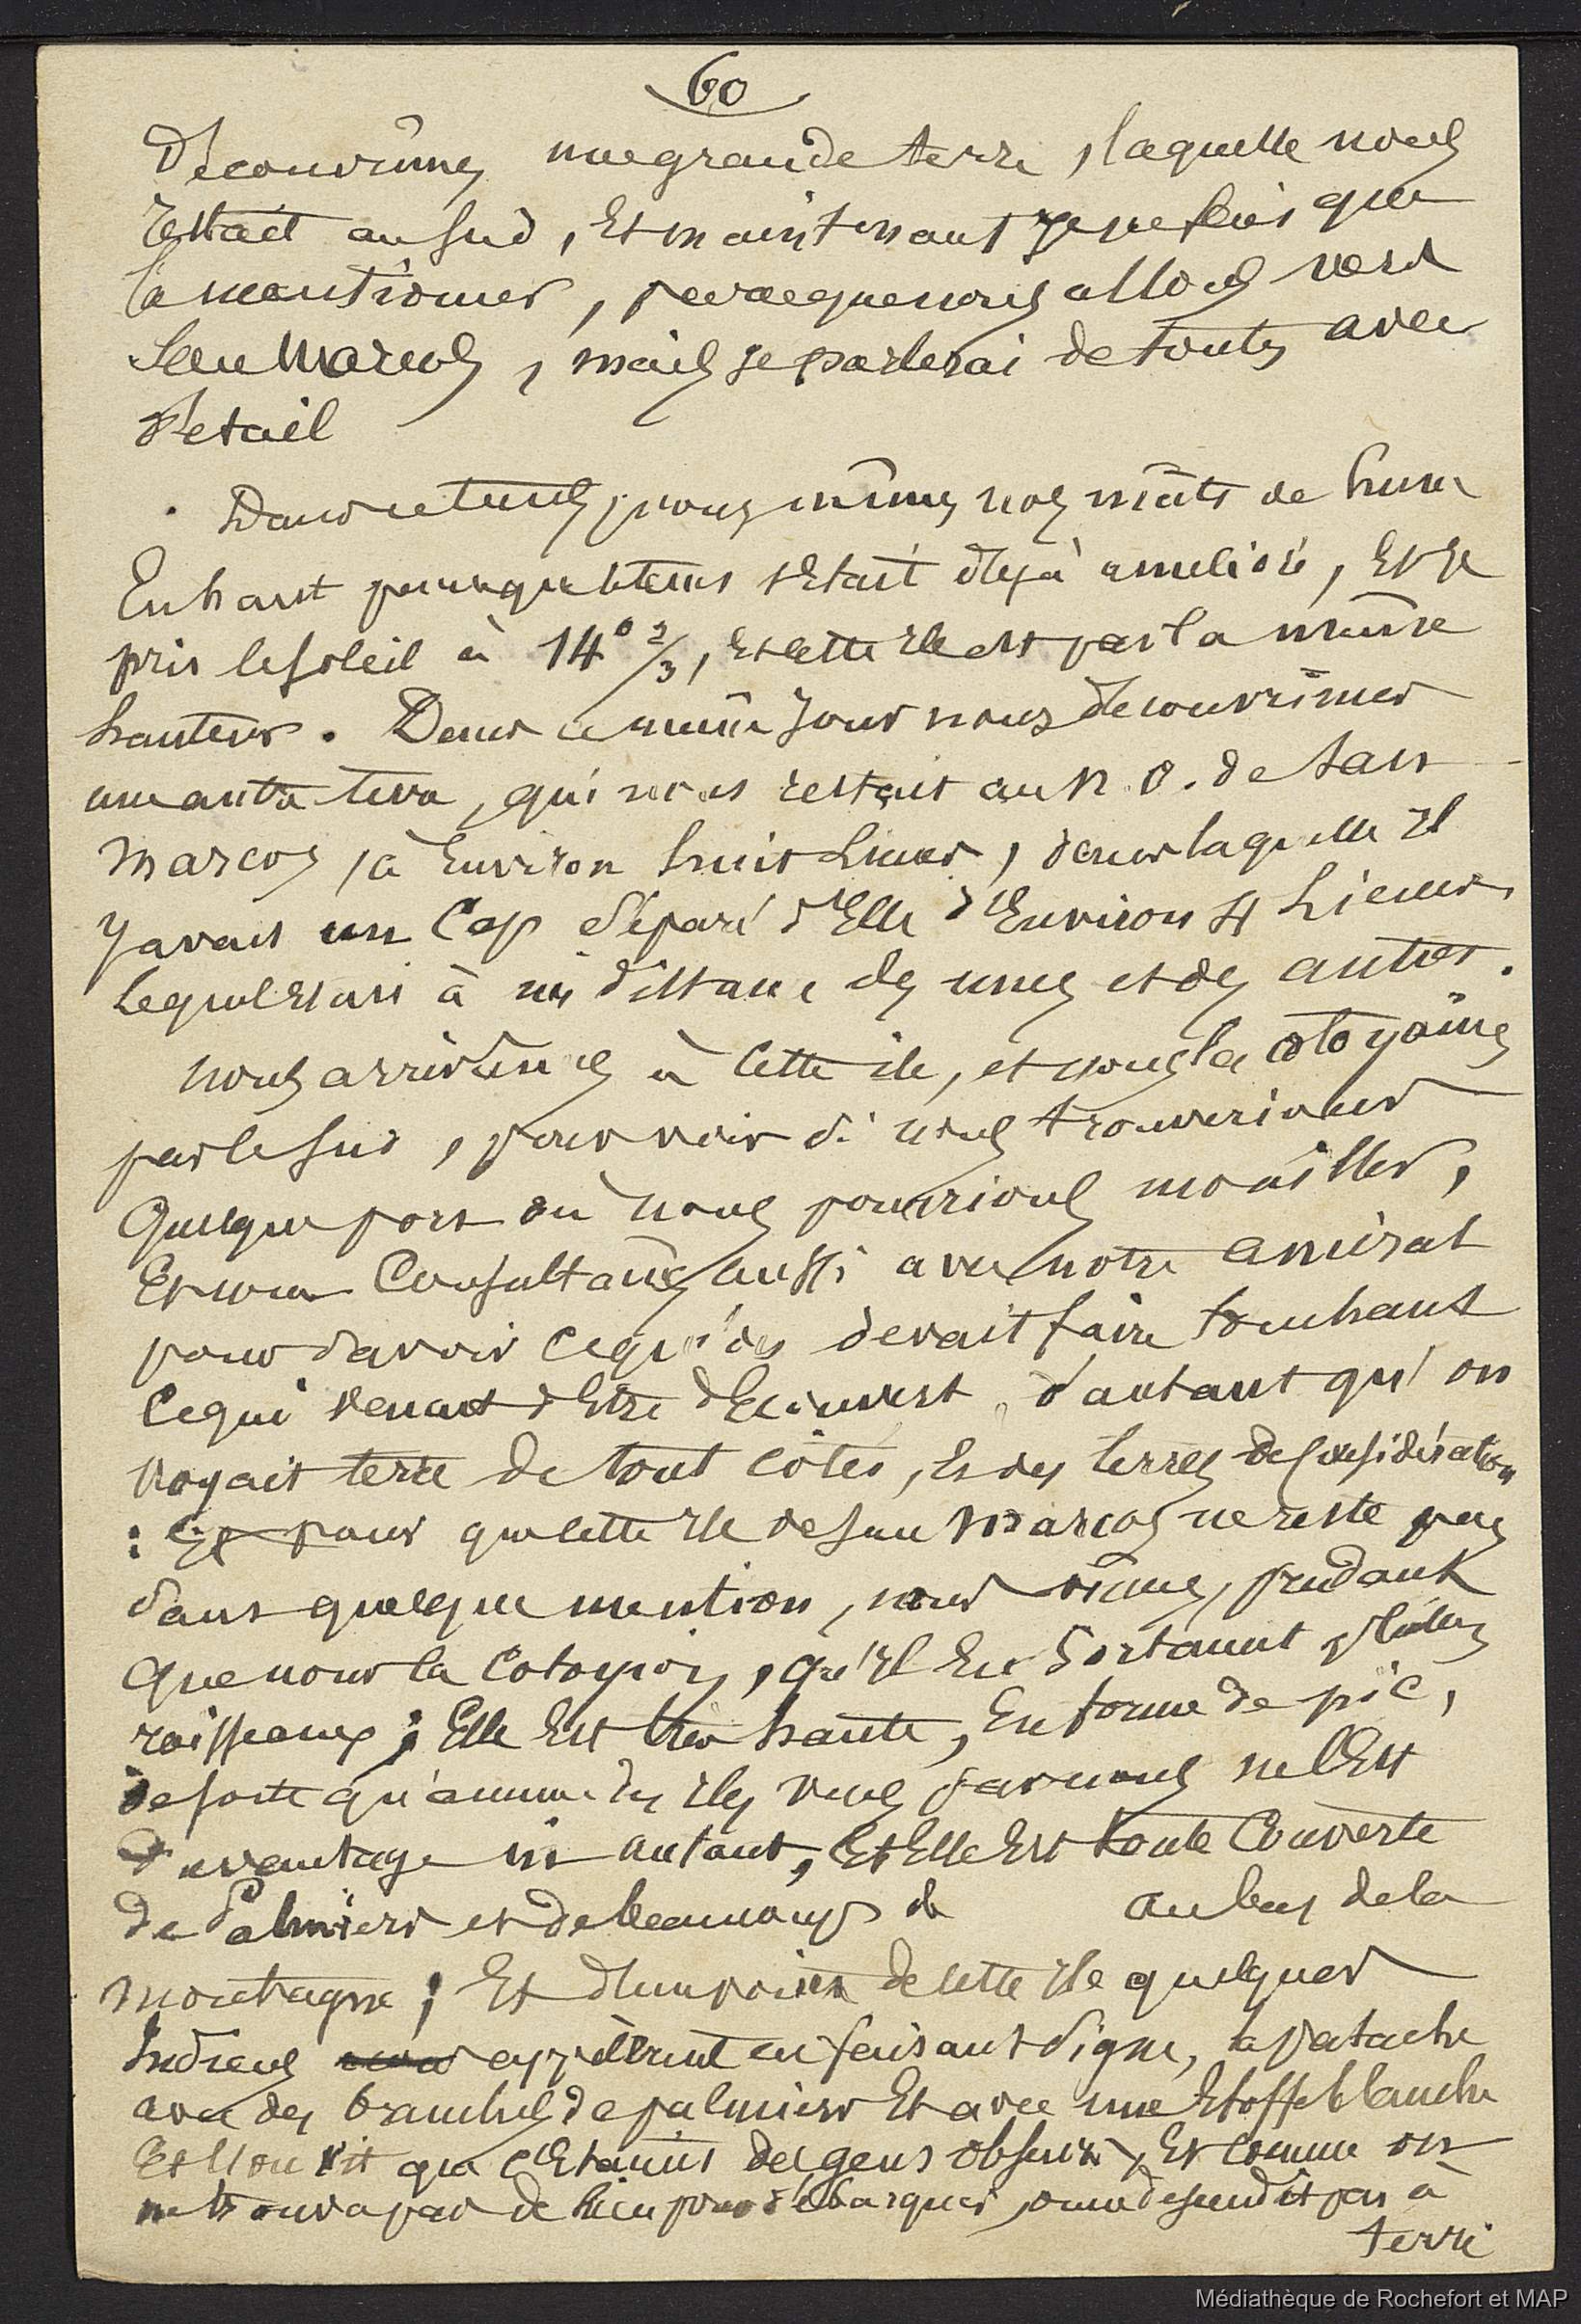 60
Découvrîmes une grande terre, laquelle nous
restait au sud, Et maintenant je ne fais que
la mentionner, parce que nous allons vers
San Marcos, mais je parlerai de toutes avec
Détail
Dans ce temps, nous mîmes nos mâts de hune
En haut parceque le tems s'Etait déjà amélioré, Et je
pris le soleil à 14° 2/3, Et cette Ile est par la même
hauteur. Dans ce même Jour nous découvrimes
une autre terre, qui nous restait au N.O. de San
Marcos, à Environ huit Lieues, dans laquelle Il
y avait un Cap séparé d'Elle d'Environ 4 Lieues
Lequel Etait à mi distance des unes et des autres.
Nous arrivâmes à Cette ile, et nous la côtoyâmes
par le sud, pour voir si nous trouverions
Quelque port où nous pourrions mouiller,
Et nous Consultâmes aussi avec notre amiral
pour savoir Ce qu'on devait faire touchant
Ce qui venait d'Etre découvert, d'autant qu'on
voyait terre de tout côtés, Et des terres de Considération
: Et pour que cette Ile de San Marcos ne reste pas
sans quelque mention, nous vîmes, pendant
Que nous la Cotoyions, qu'Il En Sortaient plusieurs
ruisseaux; Elle Est très haute, En forme de pic,
de sorte qu'aucune des Iles vues par nous ne l'Est
d'avantage ni autant, Et Elle Est toute Couverte
de Palmiers et de beaucoup de au bas de la
montagne; Et d'une pointe de cette Ile quelques
Indiens appelèrent en faisant signe, la patache
avec des branches de palmiers Et avec une Etoffe blanche
Et l'on vit que c'Etaient des gens obscurs, Et comme on
ne trouva pas de lieu pour débarquer, on ne descendit pas à
terre
Médiathèque de Rochefort et MAP